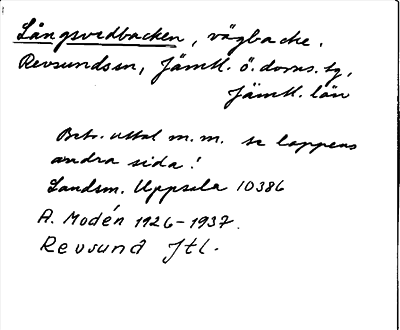 Långsvedbacken, vägbacke.
Revsundsm, Jämtl. ö. doms. tg,
Jämtl. län
Betr. uttal m.m. se lappens
andra sida!
Landsm. Uppsala 10386
A. Modén 1926-1937.
Revsund Jtl.